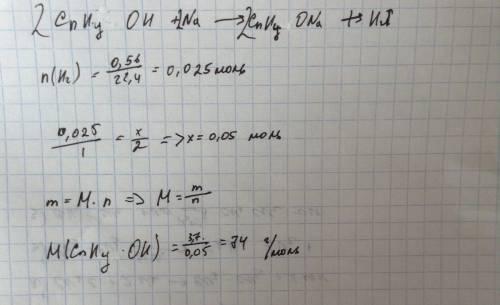 2 CnHy OH + 2Na → 2CnHy ONa + H2
n(H2) = 0,56/22,4 = 0,025 моль
0,025/1 = x/2 => x = 0,05 моль
m = M · n => M = m/n
M(CnHy · OH) = 3,7/0,05 = 74 г/моль